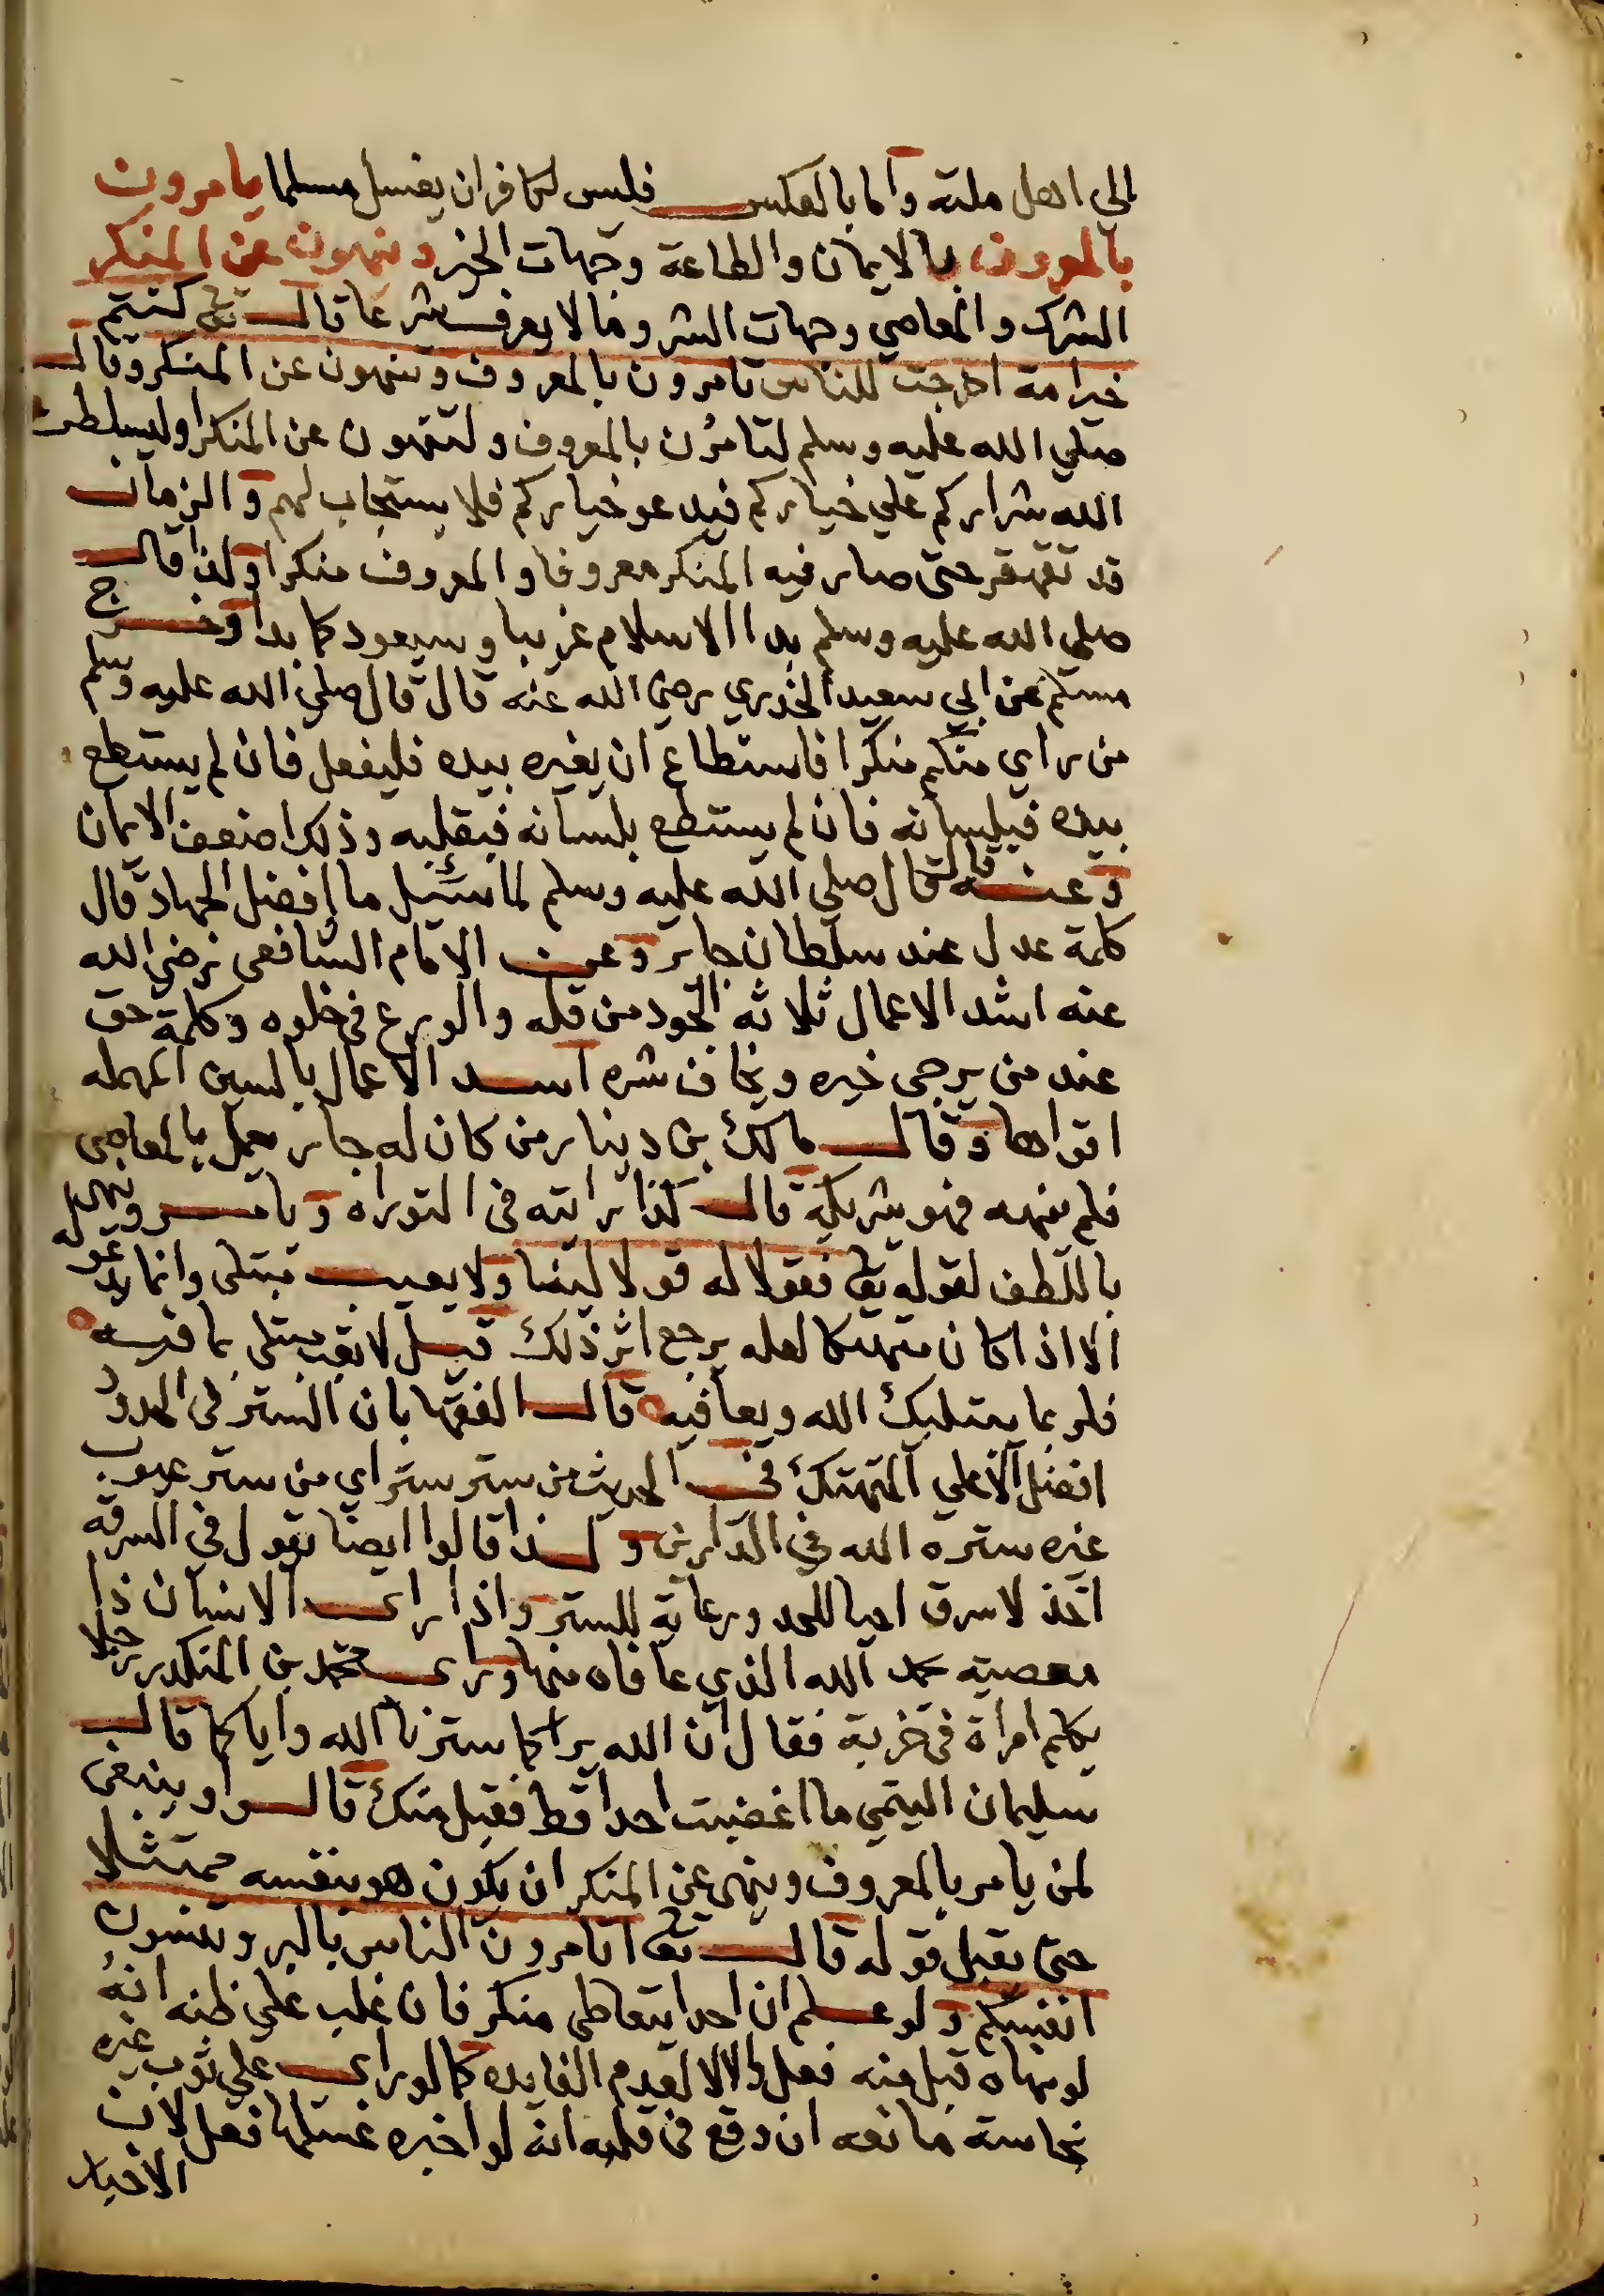 الي اهل ملته واما بالعكس فليس لكافر ان يغسل مسلما يامرون
بالمعروف بالايمان والطاعة وجهات الخير وينهون عن المنكر
الشرك والمعاصي وجهات الشر وما لا يعرف شرعا قال تعالى كنتم
خير امة اخرجت للناس تامرون بالمعروف وتنهون عن المنكر وقال
صلي الله عليه وسلم لتامرن بالمعروف ولتنهون عن المنكر او ليسلطن
الله شراركم علي خياركم فيدعو خياركم فلا يستجاب لهم والزمان
قد تقهقر حتى صار فيه المنكر معروفا والمعروف منكرا ولذا قال
صلي الله عليه وسلم بدا الاسلام غريبا وسيعود كما بدا وخرج
مسلم عن ابي سعيد الخدري رضي الله عنه قال قال صلي الله عليه وسلم
من راي منكم منكرا فاستطاع ان يغيره بيده فليفعل فان لم يستطع
بيده فبلسانه فان لم يستطع بلسانه فبقلبه وذلك اضعف الايمان
وعنه قال قال صلي الله عليه وسلم لما سئيل ما افضل الجهاد قال
كلمة عدل عند سلطان جاير وعن الامام الشافعي رضي الله
عنه اشد الاعمال ثلاثه الجود من قله والورع في خلوه وكلمة حق
عند من يرجى خيره ويخاف شره اسد الاعمال بالسين المهمله
اقواها وقال مالك بن دينار من كان له جار يعمل بالمعاصي
فلم ينهه فهو شريكه قال كذا رايته في التوراه ويامر وينهى
باللطف لقوله تعالى فقولا له قولا لينا ولا يعيب مبتلى وانما يدعو له
الا اذا كان متهتكا لعله يرجع اثر ذلك قيل لا تعب مبتلى بما فيه
فلربما يبتليك الله ويعافيه قال الفقها بان الستر في الحدود
افضل الا علي المتهتك في الحديث من ستر ستر اي من ستر عيوب
غيره ستره الله في الدارين ولذا قالوا ايضا يقول في السرقه
اخذ لا سرق احيا للحد ورعاية للستر واذا راي الانسان ذا
معصية حمد الله الذي عافاه منها وراي محمد بن المنكدر رجلا
يكلم امراة في خربة فقال ان الله يراكما سترنا الله واياكما قال
سليمان التيمي ما اغضبت احدا قط فقبل منك قالوا وينبغي
لمن يامر بالمعروف وينهى عن المنكر ان يكون هو بنفسه ممتثلا
حتى يقبل قوله قال تعالى اتامرون الناس بالبر وتنسون
انفسكم ولو علم ان احدا يتعاطى منكر فان غلب علي ظنه انه
لو نهاه قبل منه فعل والا لا لعدم الفايده كما لو راي علي ثوب غيره
نجاسة مانعه ان وقع في قلبه انه لو اخبره غسلها فعل لان
الاخبار